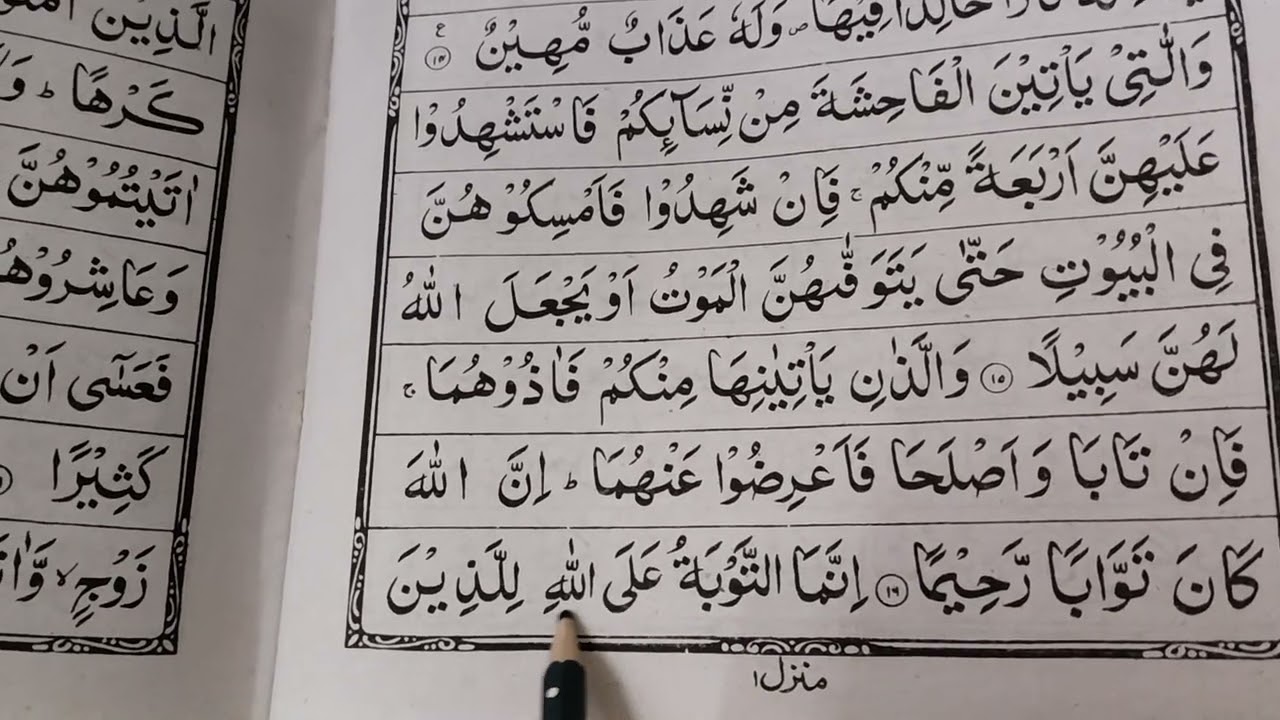 خَالِدًا فِيْهَا ۪ وَلَهٗ عَذَابٌ مُّهِيْنٌ ۝۱۴ ع
وَالّٰتِیْ یَاْتِیْنَ الْفَاحِشَةَ مِنْ نِّسَآىِٕكُمْ فَاسْتَشْهِدُوْا
عَلَیْهِنَّ اَرْبَعَةً مِّنْكُمْ ۚ فَاِنْ شَهِدُوْا فَاَمْسِكُوْهُنَّ
فِی الْبُیُوْتِ حَتّٰی یَتَوَفّٰىهُنَّ الْمَوْتُ اَوْ یَجْعَلَ اللّٰهُ
لَهُنَّ سَبِیْلًا ۝۱۵ وَالَّذٰنِ یَاْتِیٰنِهَا مِنْكُمْ فَاٰذُوْهُمَا ۚ
فَاِنْ تَابَا وَاَصْلَحَا فَاَعْرِضُوْا عَنْهُمَا ؕ اِنَّ اللّٰهَ
كَانَ تَوَّابًا رَّحِیْمًا ۝۱۶ اِنَّمَا التَّوْبَةُ عَلَی اللّٰهِ لِلَّذِیْنَ
منزل۱
الَّذِیْنَ
كَرْهًا ؕ وَ
اٰتَیْتُمُوْهُنَّ
وَعَاشِرُوْهُ
فَعَسٰۤی اَنْ
كَثِیْرًا
زَوْجٍ ۙ وَّاٰتَ